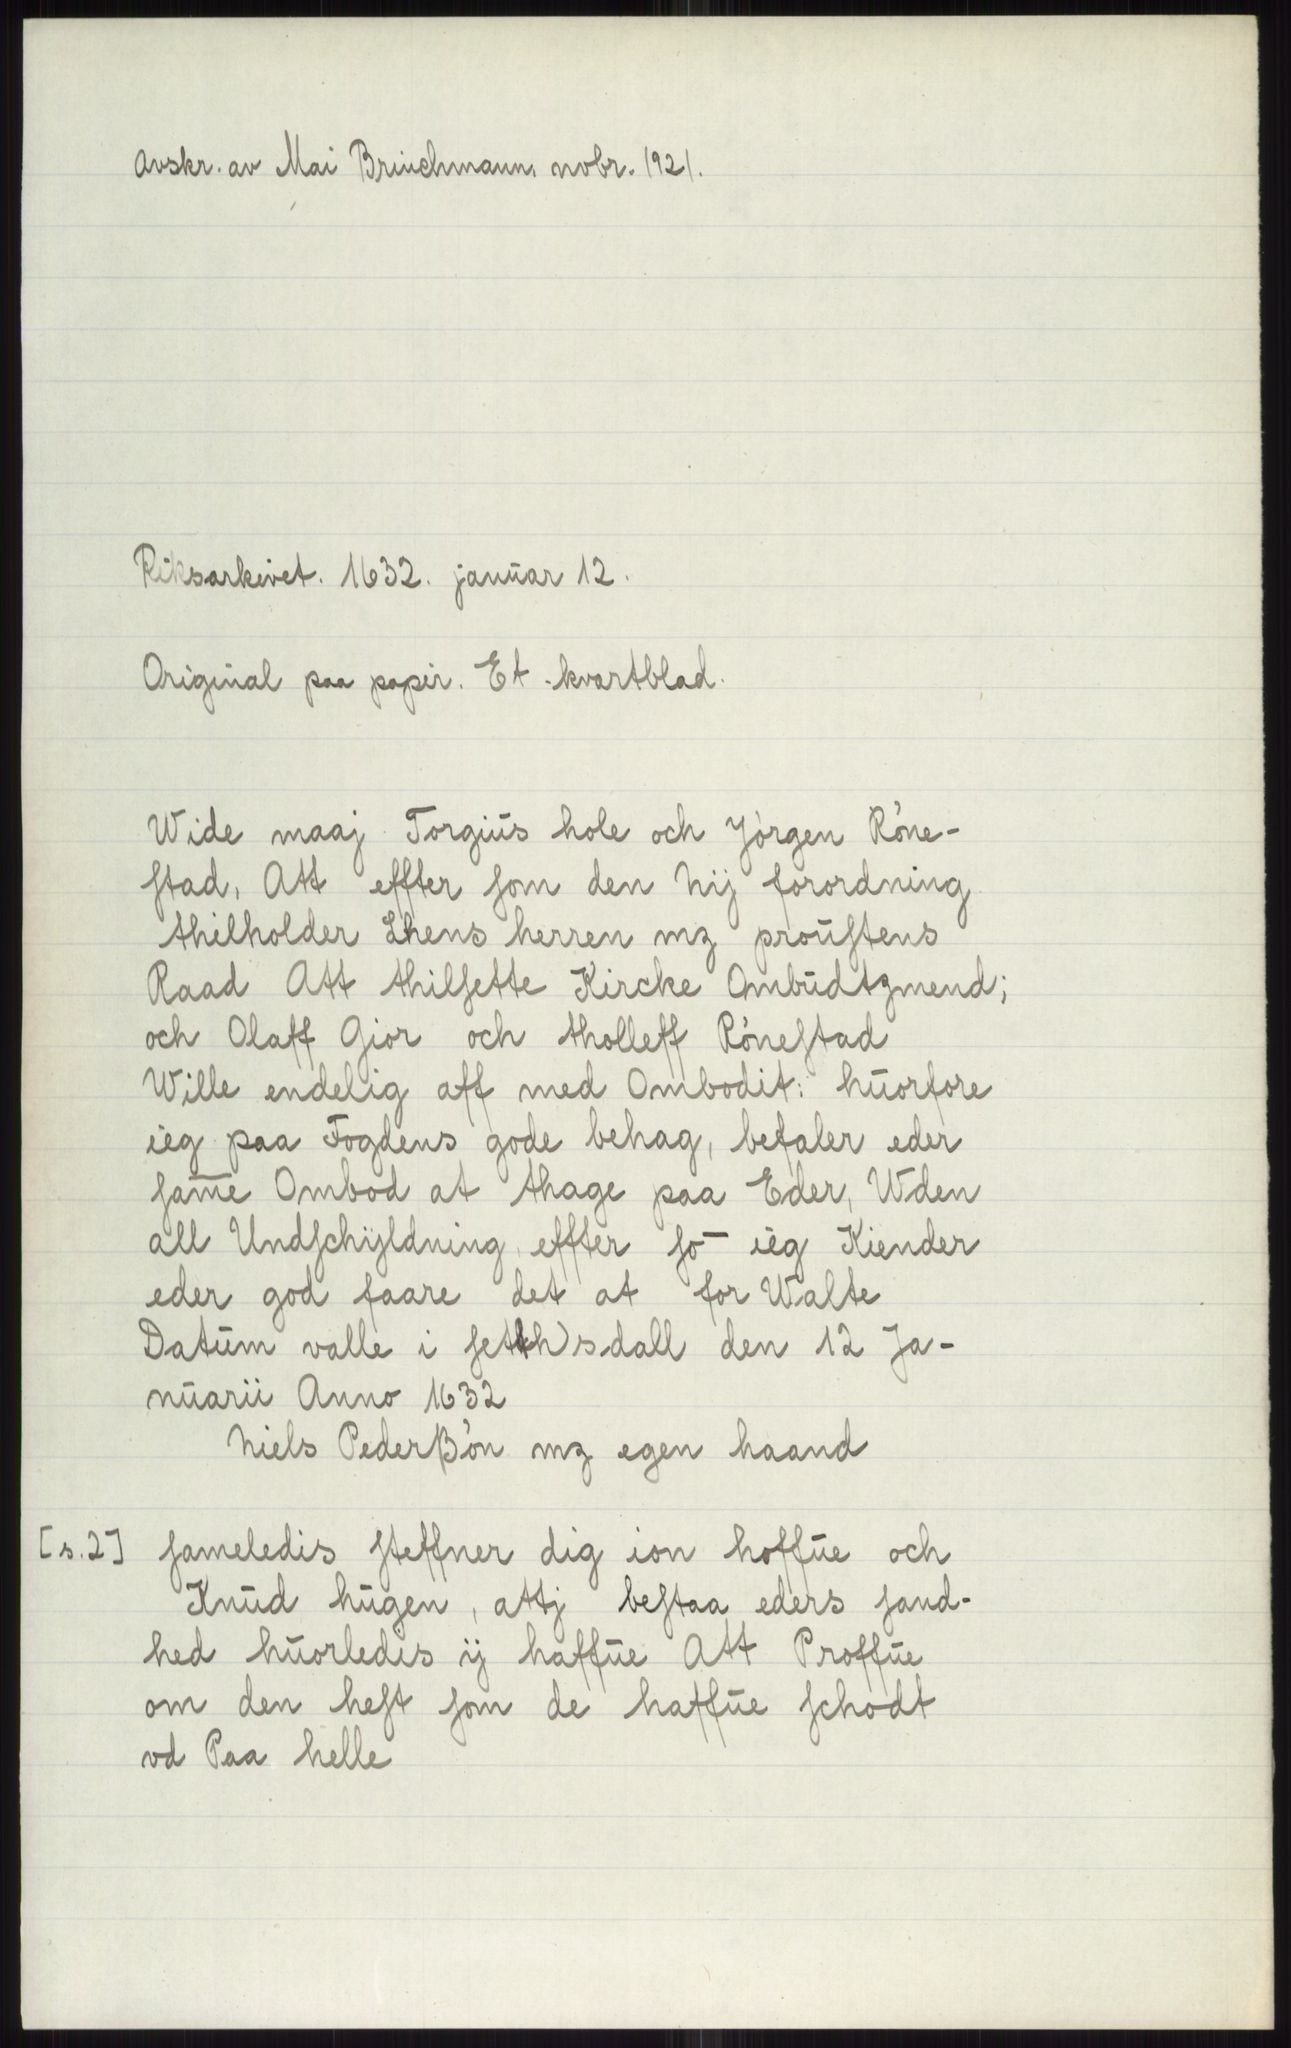 Avskr. av Mai Brinchmann, nobr. 1921.
Riksarkivet. 1632. januar 12.
Original paa papir. Et kvartblad.
Wide maaj Torgius hole och Jörgen Röne-
stad, Att effter som den Nij forordning
thilholder Lhens herren mz proustens
Raad Att thilsette Kircke Ombudtzmend;
och Olaff Gior och tholleff Rönestad
Wille endelig aff med Ombodit: huorfore
ieg paa Fogdens gode behag, befaler eder
sam̅e Ombod at thage paa Eder, Wden
all Undschijldning effter so̅ ieg Kiender
eder god faare det at for Walte
Datum valle i set(h)sdall den 12 Ja-
nuarii Anno 1632
Niels Pederßön mz egen haand
[s. 2] sameledis steffner dig ion hoffue och
Knud hugen, attj bestaa eders sand-
hed huorledis ij haffue Att Proffue
om den hest som de haffue schodt
vd Paa helle